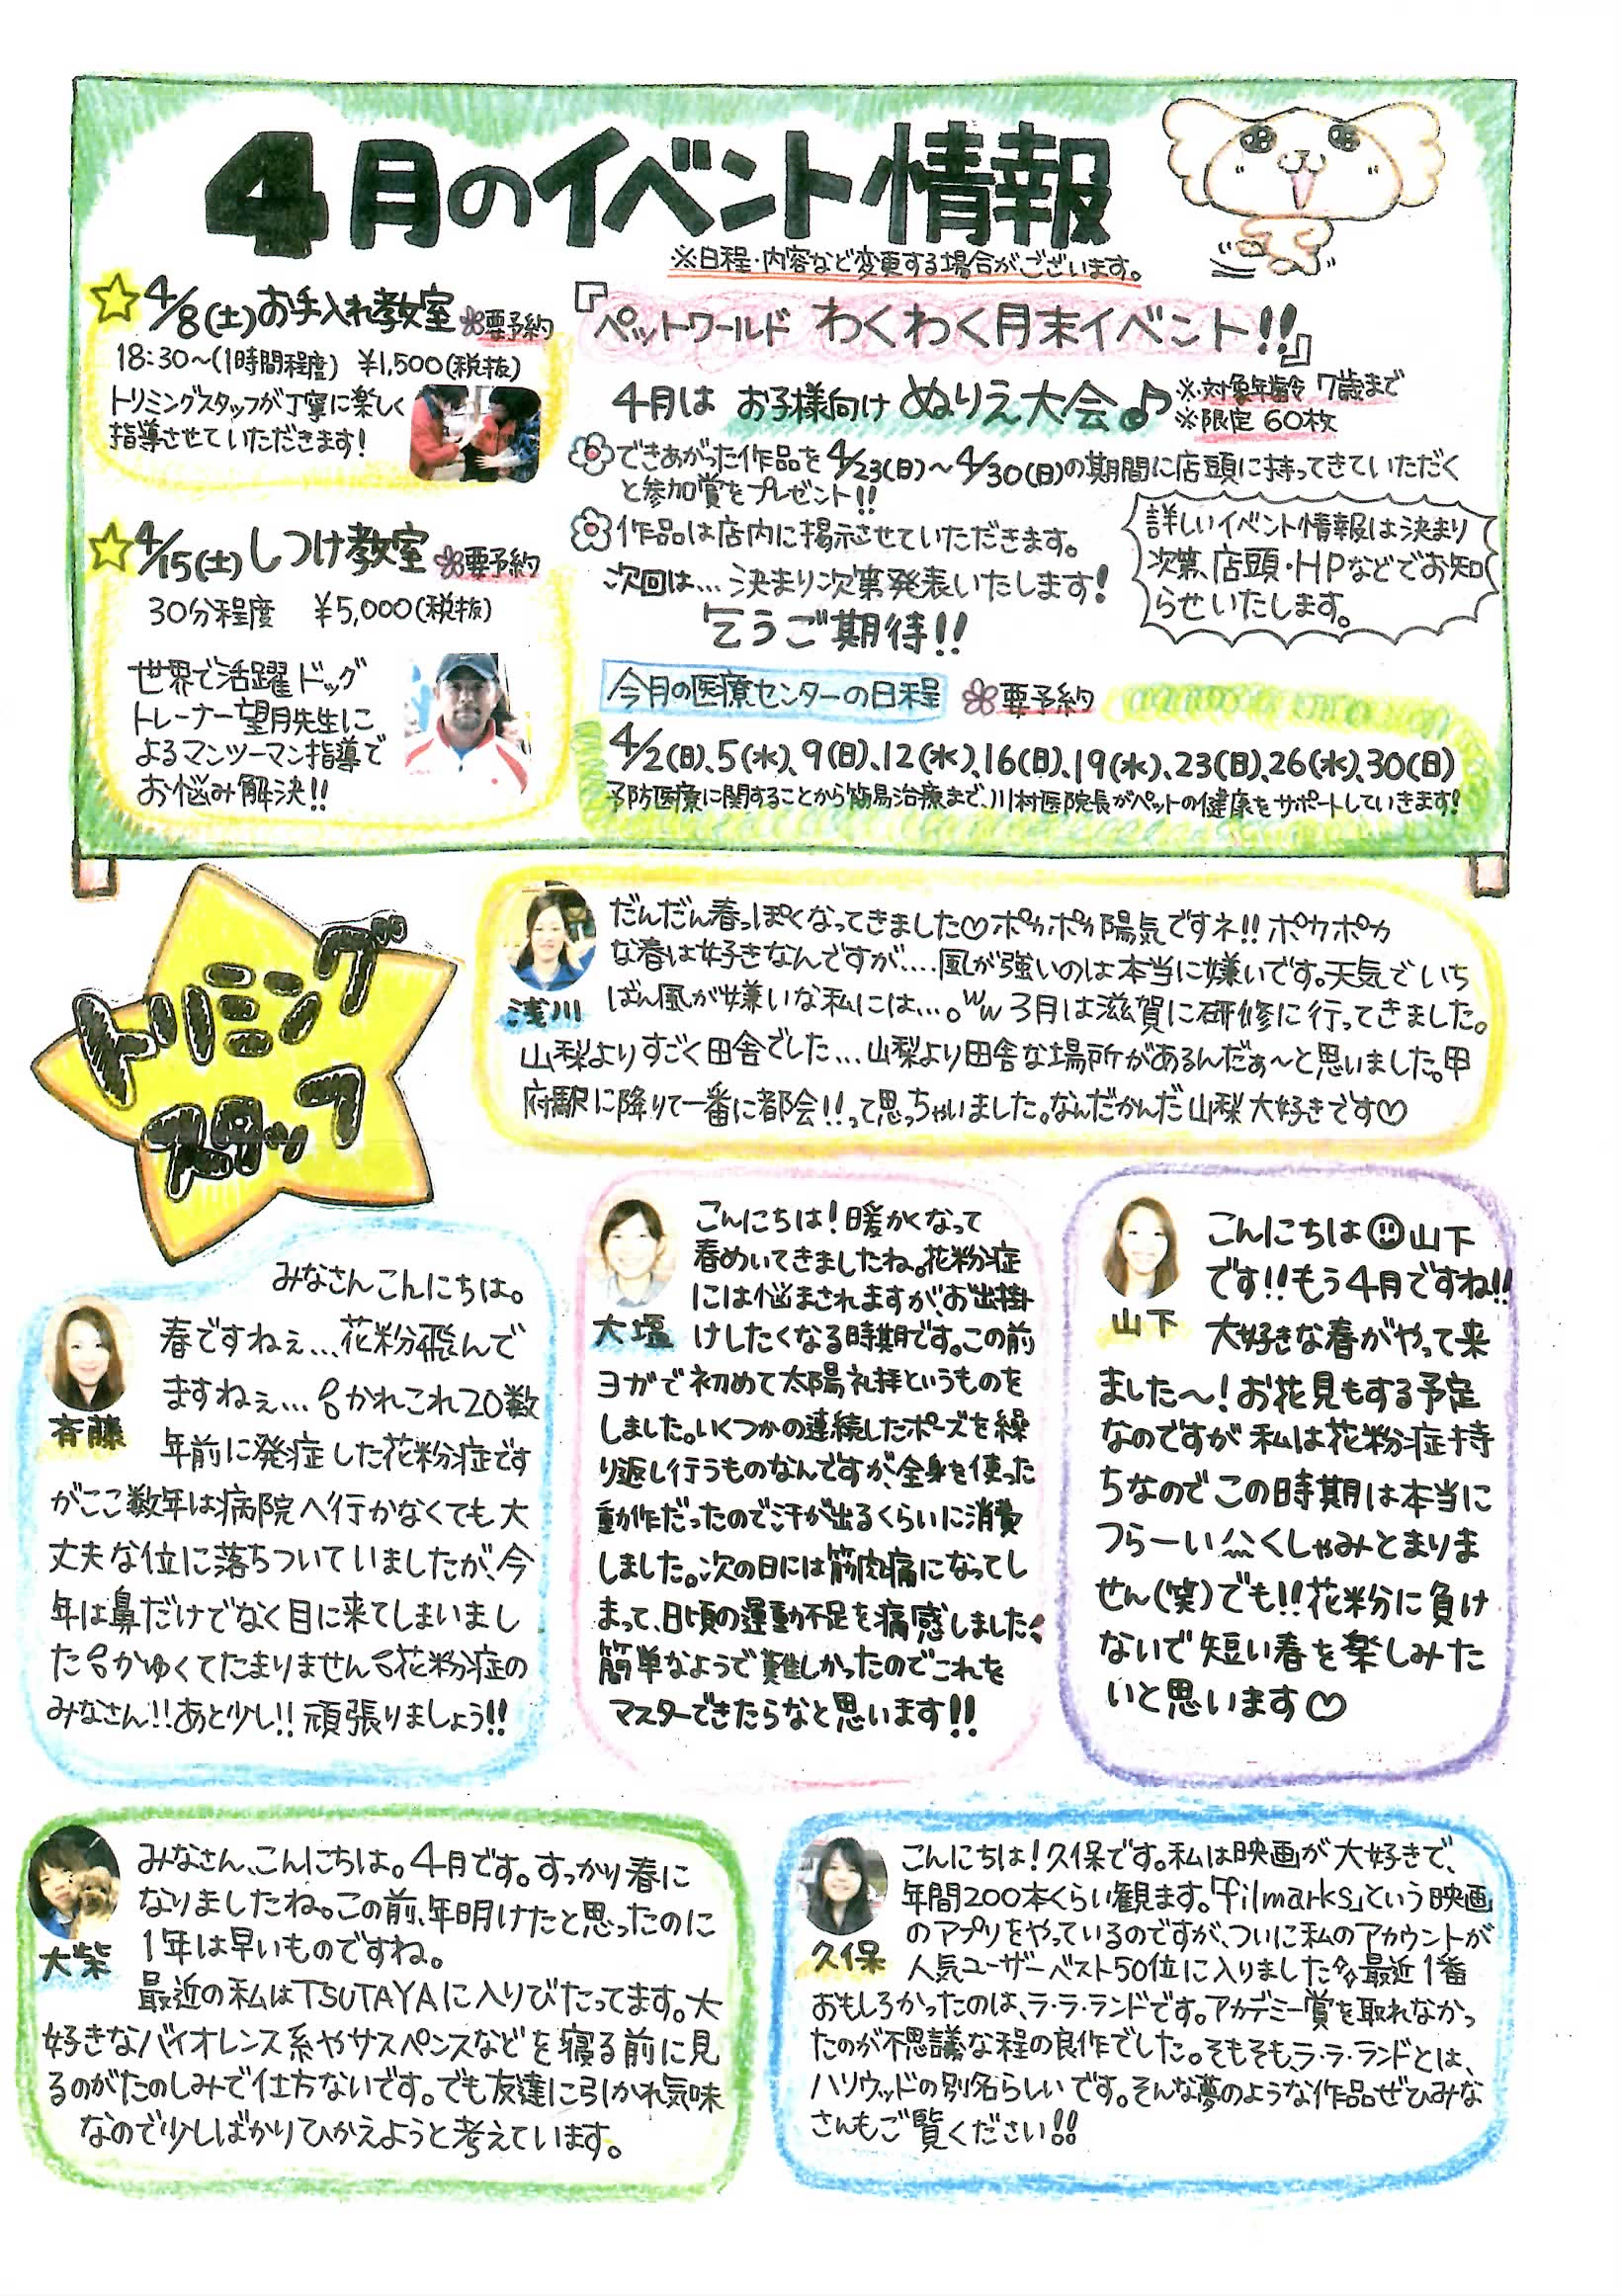 4月のイベント情報
※日程・内容など変更する場合がございます。
4/8(土)お手入れ教室 要予約
18:30〜(1時間程度) ¥1,500(税抜)
トリミングスタッフが丁寧に楽しく
指導させていただきます!
4/15(土)しつけ教室 要予約
30分程度 ¥5,000(税抜)
世界で活躍ドッグ
トレーナー望月先生に
よるマンツーマン指導で
お悩み解決!!
『ペットワールド わくわく月末イベント!!』
4月は お子様向け ぬりえ大会♪
※対象年齢 7歳まで
※限定 60枚
できあがった作品を4/23(日)〜4/30(日)の期間に店頭に持ってきていただく
と参加賞をプレゼント!!
作品は店内に掲示させていただきます。
次回は…決まり次第発表いたします!
乞うご期待!!
詳しいイベント情報は決まり
次第、店頭・HPなどでお知
らせいたします。
今月の医療センターの日程 要予約
4/2(日)、5(水)、9(日)、12(水)、16(日)、19(水)、23(日)、26(水)、30(日)
予防医療に関することから簡易治療まで、川村医院長がペットの健康をサポートしていきます!
トリミング
スタッフ
浅川
だんだん春っぽくなってきました♡ポカポカ陽気ですネ!!ポカポカ
な春は好きなんですが....風が強いのは本当に嫌いです。天気でいち
ばん風が嫌いな私には…。ww 3月は滋賀に研修に行ってきました。
山梨よりすごく田舎でした…山梨より田舎な場所があるんだぁ〜と思いました。甲
府駅に降りて一番に都会!!って思っちゃいました。なんだかんだ山梨大好きです♡
斉藤
みなさんこんにちは。
春ですねぇ…花粉飛んで
ますねぇ…かれこれ20数
年前に発症した花粉症です
がここ数年は病院へ行かなくても大
丈夫な位に落ちついていましたが、今
年は鼻だけでなく目に来てしまいまし
たかゆくてたまりません花粉症の
みなさん!!あと少し!!頑張りましょう!!
大塩
こんにちは!暖かくなって
春めいてきましたね。花粉症
には悩まされますが、お出掛
けしたくなる時期です。この前
ヨガで初めて太陽礼拝というものを
しました。いくつかの連続したポーズを繰
り返し行うものなんですが、全身を使った
動作だったので汗が出るくらいに消費
しました。次の日には筋肉痛になってし
まって、日頃の運動不足を痛感しました!
簡単なようで難しかったのでこれを
マスターできたらなと思います!!
山下
こんにちは☺山下
です!!もう4月ですね!!
大好きな春がやって来
ました〜!お花見もする予定
なのですが私は花粉症持
ちなのでこの時期は本当に
つらーいくしゃみとまりま
せん(笑)でも!!花粉に負け
ないで短い春を楽しみた
いと思います♡
大柴
みなさん、こんにちは。4月です。すっかり春に
なりましたね。この前、年明けたと思ったのに
1年は早いものですね。
最近の私はTSUTAYAに入りびたってます。大
好きなバイオレンス系やサスペンスなどを寝る前に見
るのがたのしみで仕方ないです。でも友達に引かれ気味
なので少しばかりひかえようと考えています。
久保
こんにちは!久保です。私は映画が大好きで、
年間200本くらい観ます。「filmarks」という映画
のアプリをやっているのですが、ついに私のアカウントが
人気ユーザーベスト50位に入りました最近1番
おもしろかったのは、ラ・ラ・ランドです。アカデミー賞を取れなかっ
たのが不思議な程の良作でした。そもそも、ラ・ラ・ランドとは、
ハリウッドの別名らしいです。そんな夢のような作品ぜひみな
さんもご覧ください!!